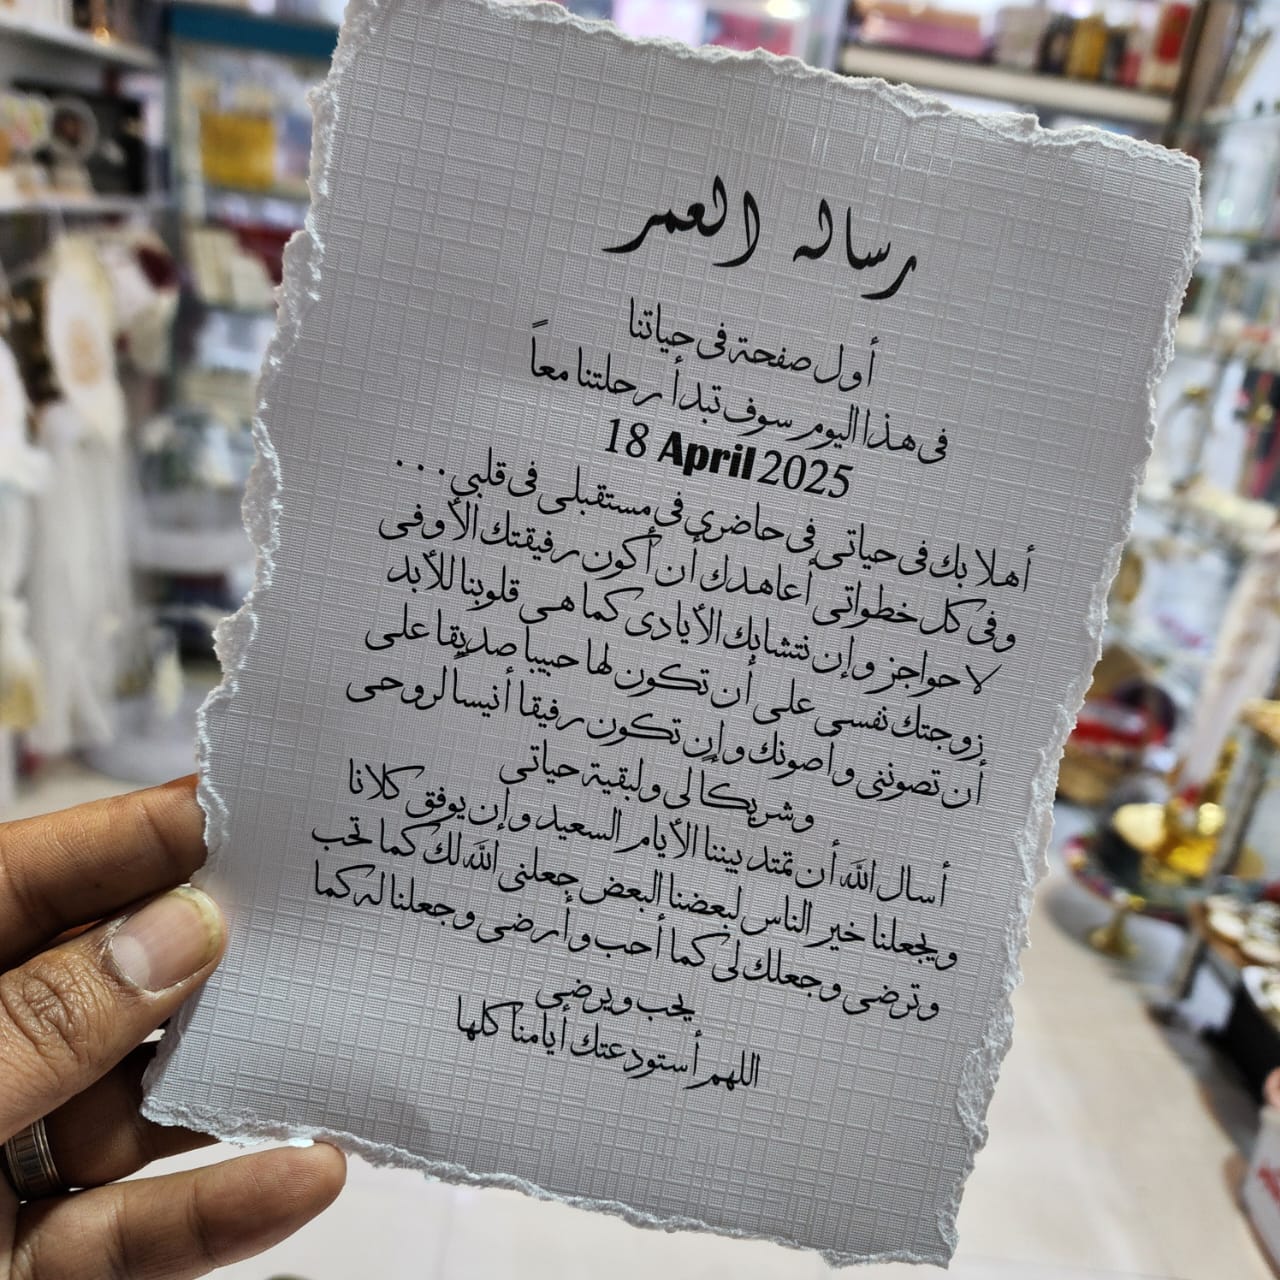 رساله العمر
أول صفحة فى حياتنا
فى هذا اليوم سوف تبدأ رحلتنا معاً
18 April 2025
أهلا بك فى حياتى فى حاضري فى مستقبلى فى قلبي...
وفى كل خطواتى أعاهدك أن أكون رفيقتك الأوفى
لا حواجز وإن نتشابك الأيادى كما هى قلوبنا للأبد
زوجتك نفسى على أن تكون لها حبيبا صديقا على
أن تصوننى وأصونك وإن تكون رفيقا أنيساً لروحى
وشريكاً لى ولبقية حياتى
أسال الله أن تمتد بيننا الأيام السعيد وإن يوفق كلانا
ويجعلنا خير الناس لبعضنا البعض جعلنى الله لك كما تحب
وترضى وجعلك لى كما أحب وأرضى وجعلنا له كما
يحب ويرضى
اللهم أستودعتك أيامنا كلها